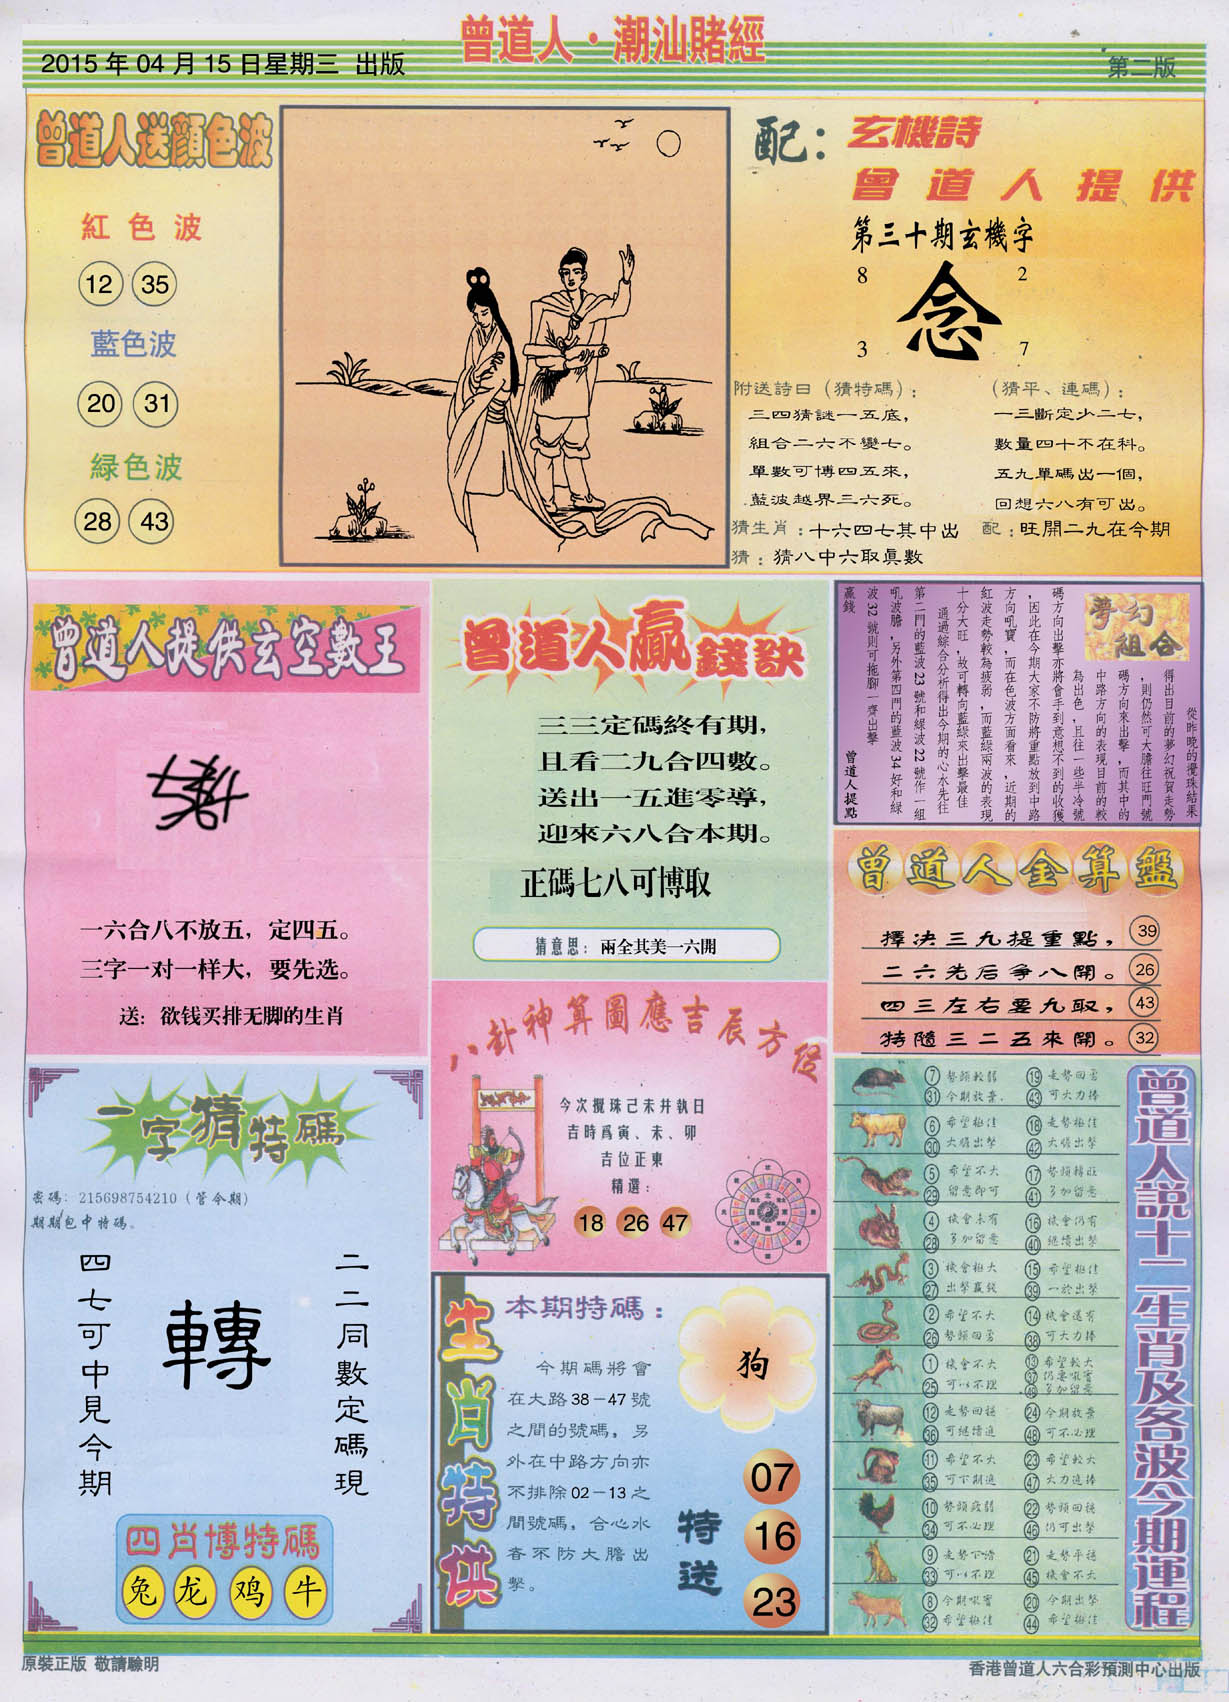 曾道人·潮汕賭經
2015年04月15日星期三 出版
第二版
曾道人送顏色波
紅色波
12 35
藍色波
20 31
緑色波
28 43
配：玄機詩
曾道人提供
第三十期玄機字
8 2
念
3 7
附送詩曰（猜特碼）：
三四猜謎一五底，
組合二六不變七。
單數可博四五來，
藍波越界三六死。
（猜平、連碼）：
一三斷定少二七，
數量四十不在科。
五九單碼出一個，
回想六八有可出。
猜生肖：十六四七其中出
配：旺開二九在今期
猜：猜八中六取眞數
曾道人提供玄空數王
一六合八不放五，定四五。
三字一对一样大，要先选。
送：欲钱买排无脚的生肖
曾道人贏錢訣
三三定碼終有期，
且看二九合四數。
送出一五進零導，
迎來六八合本期。
正碼七八可博取
猜意思：兩全其美一六開
夢幻組合
從昨晚的攪珠結果
得出目前的夢幻祝賀走勢
，則仍然可大膽往旺門號
碼方向來出擊，而其中的
中路方向的表現目前的較
為出色，且往一些半冷號
碼方向出擊亦將會手到意想不到的收獲
，因此在今期大家不防將重點放到中路
方向吼寶，而在色波方面看來，近期的
紅波走勢較為疲弱，而藍綠兩波的表現
十分大旺，故可轉向藍綠來出擊最佳
通過綜合分析得出今期的心水先往
第二門的藍波23號和綠波22號作一組
吼波膽，另外第四門的藍波34好和綠
波32號則可拖腳一齊出擊
贏錢
曾道人提點
曾道人金算盤
擇決三九提重點， 39
二六先后争八開。 26
四三左右要九取， 43
特隨三二五來開。 32
八卦神算圖應吉辰方位
今次攪珠己未井執日
吉時爲寅、未、卯
吉位正東
精選：
18 26 47
一字猜特碼
密碼：215698754210（管今期）
期期包中特碼。
二二同數定碼現
轉
四七可中見今期
四肖博特碼
兔 龙 鸡 牛
生肖特供
本期特碼：
今期碼將會
在大路38－47號
之間的號碼，另
外在中路方向亦
不排除02－13之
間號碼，合心水
者不防大膽出
擊。
狗
特送
07
16
23
曾道人說十二生肖及各波今期運程
7 勢頭較弱 19 走勢回勇
31 今期放棄 43 可大力捧
6 希望極佳 18 走勢極佳
30 大膽出擊 42 大膽出擊
5 希望不大 17 勢頭轉旺
29 留意即可 41 多加留意
4 機會未有 16 機會仍有
28 多加留意 40 繼續出擊
3 機會極大 15 希望極佳
27 出擊贏錢 39 一於出擊
2 希望不大 14 機會還有
26 勢頭回勇 38 可大力捧
1 機會不大 13 希望較大
25 可以不理 37 仍要吸寳
49 多加留意
12 走勢回穩 24 今期放棄
36 可繼續追 48 可不必理
11 希望不大 23 希望較大
35 可下期追 47 大力追捧
10 勢頭疲弱 22 勢頭回穩
34 可不必理 46 仍可出擊
9 走勢下滑 21 走勢平穩
33 可以不理 45 機會不大
8 今期吸寳 20 今期出擊
32 希望極佳 44 希望極佳
原裝正版 敬請驗明
香港曾道人六合彩預測中心出版